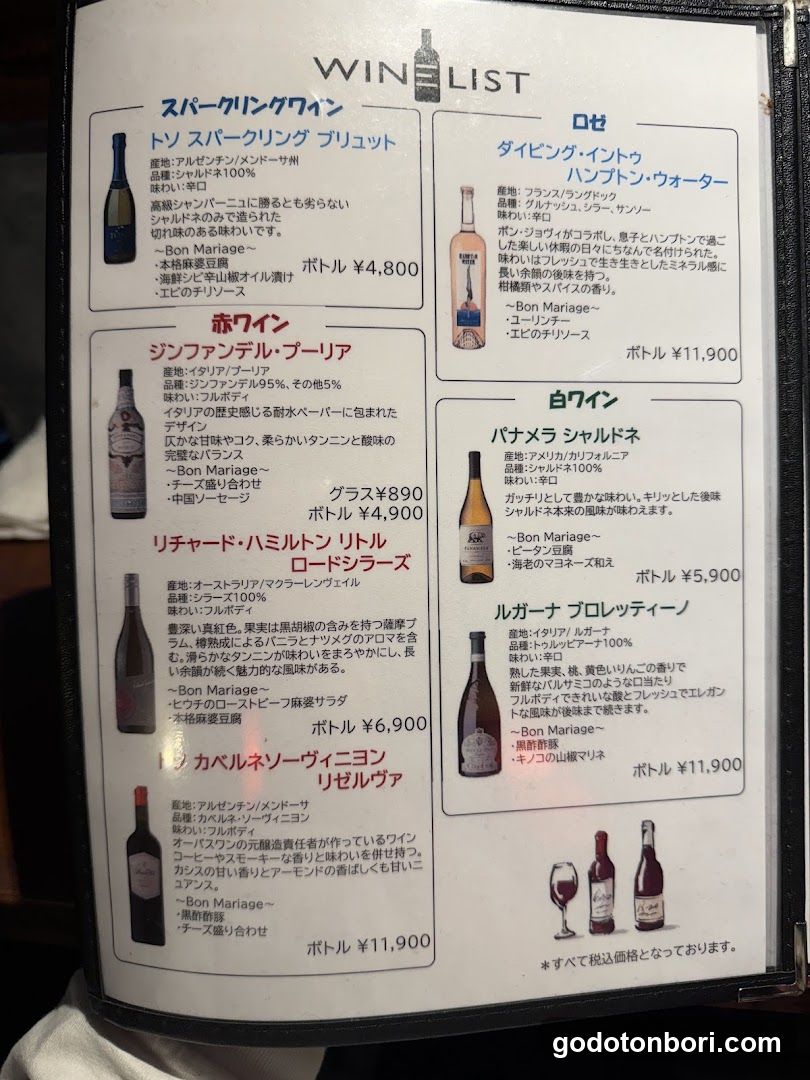 WINE LIST
スパークリングワイン
トソ スパークリング ブリュット
産地:アルゼンチン/メンドーサ州
品種:シャルドネ100%
味わい:辛口
高級シャンパーニュに勝るとも劣らない
シャルドネのみで造られた
切れ味のある味わいです。
~Bon Mariage~
・本格麻婆豆腐
・海鮮シビ辛山椒オイル漬け
・エビのチリソース
ボトル ¥4,800
赤ワイン
ジンファンデル・プーリア
産地:イタリア/プーリア
品種:ジンファンデル95%、その他5%
味わい:フルボディ
イタリアの歴史感じる耐水ペーパーに包まれた
デザイン
仄かな甘味やコク、柔らかいタンニンと酸味の
完璧なバランス
~Bon Mariage~
・チーズ盛り合わせ
・中国ソーセージ
グラス¥890
ボトル ¥4,900
リチャード・ハミルトン リトル
ロードシラーズ
産地:オーストラリア/マクラーレンヴェイル
品種:シラーズ100%
味わい:フルボディ
豊深い真紅色。果実は黒胡椒の含みを持つ薩摩プ
ラム、樽熟成によるバニラとナツメグのアロマを含
む。滑らかなタンニンが味わいをまろやかにし、長
い余韻が続く魅力的な風味がある。
~Bon Mariage~
・ヒウチのローストビーフ麻婆サラダ
・本格麻婆豆腐
ボトル ¥6,900
トソ カベルネソーヴィニヨン
リゼルヴァ
産地:アルゼンチン/メンドーサ
品種:カベルネ・ソーヴィニヨン
味わい:フルボディ
オーパスワンの元醸造責任者が作っているワイン
コーヒーやスモーキーな香りと味わいを併せ持つ。
カシスの甘い香りとアーモンドの香ばしくも甘いニ
ュアンス。
~Bon Mariage~
・黒酢酢豚
・チーズ盛り合わせ
ボトル ¥11,900
ロゼ
ダイビング・イントゥ
ハンプトン・ウォーター
産地: フランス/ラングドック
品種: グルナッシュ、シラー、サンソー
味わい:辛口
ボン・ジョヴィがコラボし、息子とハンプトンで過ご
した楽しい休暇の日々にちなんで名付けられた。
味わいはフレッシュで生き生きとしたミネラル感に
長い余韻の後味を持つ。
柑橘類やスパイスの香り。
~Bon Mariage~
・ユーリンチー
・エビのチリソース
ボトル ¥11,900
白ワイン
パナメラ シャルドネ
産地:アメリカ/カリフォルニア
品種:シャルドネ100%
味わい:辛口
ガッチリとして豊かな味わい。キリッとした後味
シャルドネ本来の風味が味わえます。
~Bon Mariage~
・ピータン豆腐
・海老のマヨネーズ和え
ボトル ¥5,900
ルガーナ ブロレッティーノ
産地:イタリア/ ルガーナ
品種:トゥルッビアーナ100%
味わい:辛口
熟した果実、桃、黄色いりんごの香りで
新鮮なバルサミコのような口当たり
フルボディできれいな酸とフレッシュでエレガン
トな風味が後味まで続きます。
~Bon Mariage~
・黒酢酢豚
・キノコの山椒マリネ
ボトル ¥11,900
*すべて税込価格となっております。
godotonbori.com